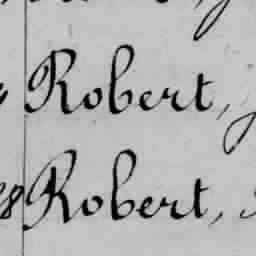 Robert,
8 Robert,